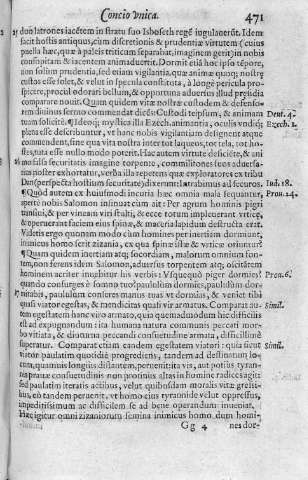 Concio vnica. 471
duo latrones iacētem in stratu suo Isboseth regē iugulauerūt. Idem
facit hostis antiquus, cum discretionis & prudentiæ virtutem (cuius
puella hæc, quæ à paleis triticum separabat, imaginem gerit) in nobis
consopitam & iacentem animaduertit. Dormit etiā hoc ipso tēpore,
non solùm prudentia, sed etiam vigilantia, quæ animæ quoq; nostræ
custos esse solet,
spicere, procul odorari bellum, & opportuna aduersus illud præsidia
comparare nouit. Quem quidem vitæ nostræ custodem & defenso-
rem diuinus sermo commendat dicēs: Custodi teipsum, & animam Deut. 4.
tuam solicitè. Ideoq; mystica illa Ezech. animantia, oculis vndiq; Ezech. 1.
plena esse describuntur, vt hanc nobis vigilantiam designent atque
commendent, sine qua vita nostra inter tot laqueos, tot tela, tot ho-
stes, nullo modo tuta esse poterit. Hac autem virtute deficiēte, & ani
mo falsa securitatis imagine torpente, commilitones suos aduersa-
rius noster exhortatur, verba illa repetens quæ exploratores ex tribu
Dan (perspecta hostium securitate) dixerunt: Iud. 18.
Quòd autem ex huiusmodi incuria hæc omnia mala sequantur, Prou. 24.
apertè nobis Salomon insinuat cùm ait: Per agrum hominis pigri
transiui, & per vineam viri stulti, & ecce totum impleuerant vrticæ,
& operuerant faciem eius spinæ, & maceria lapidum destructa erat.
Videtis ergo quomodo in cordibus hominum per inertiam dormiunt,
inimicus homo serit zizania, ex qua spinæ istæ & vrticæ oriuntur?
Quam quidem inertiam atq; socordiam, malorum omnium fon-
tem, non ferens idem Salomon, aduersus torpentem atq; oscitātem
hominem acriter inuehitur his verbis: Vsquequò piger dormies? Prou. 6.
quando consurges è somno tuo? paululùm dormies, paululùm dor-
mitabis, paululùm conseres manus tuas vt dormias, & veniet tibi
quasi viator egestas, & mendicitas quasi vir armatus. Comparat au- Simil.
tem egestatem hanc viro armato, quia quemadmodum hic difficilis
est ad expugnandum: ita humana natura communis peccati mor-
bo vitiata, & diuturna peccandi consuetudine armata, difficillimè
superatur. Comparat etiam eandem egestatem viatori: quia sicut Simil.
viator paulatim quotidiè progrediens, tandem ad destinatum lo-
cum, quamuis longiùs distantem, peruenit: ita vis, aut potiùs tyran-
nis prauæ consuetudinis non protinus altas in homine radices agit:
sed paulatim iteratis actibus, velut quibusdam moralis vitæ gressi-
bus, eò tandem peruenit, vt homo eius tyrannide velut oppressus,
impeditissimum ac difficilem se ad bene operandum inueniat.
Hæc igitur omni zizaniorum semina inimicus homo dum homi-
Gg 4 nes dor-